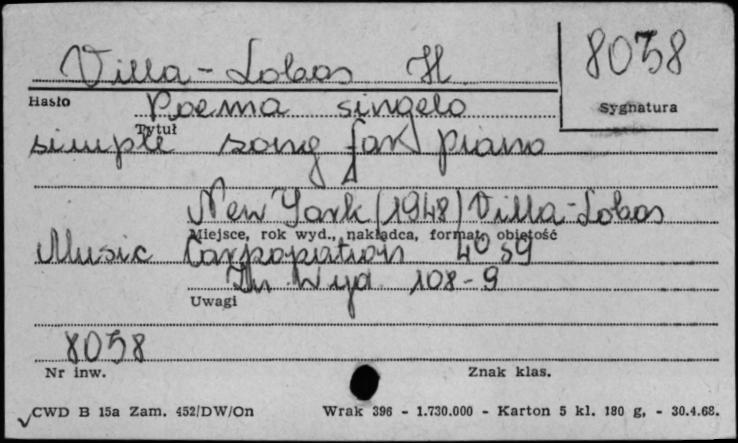 Villa-Lobos H
8058
Hasło
Sygnatura
Poema singelo
Tytuł
simple song for piano
New York (1948) Villa-Lobos
Miejsce, rok wyd., nakładca, format, objętość
Music Corporation 4° S9
Nr Wyd. 108-9
Uwagi
8058
Nr inw.
Znak klas.
CWD B 15a Zam. 452/DW/On Wrak 396 - 1.730.000 - Karton 5 kl. 180 g, - 30.4.68.